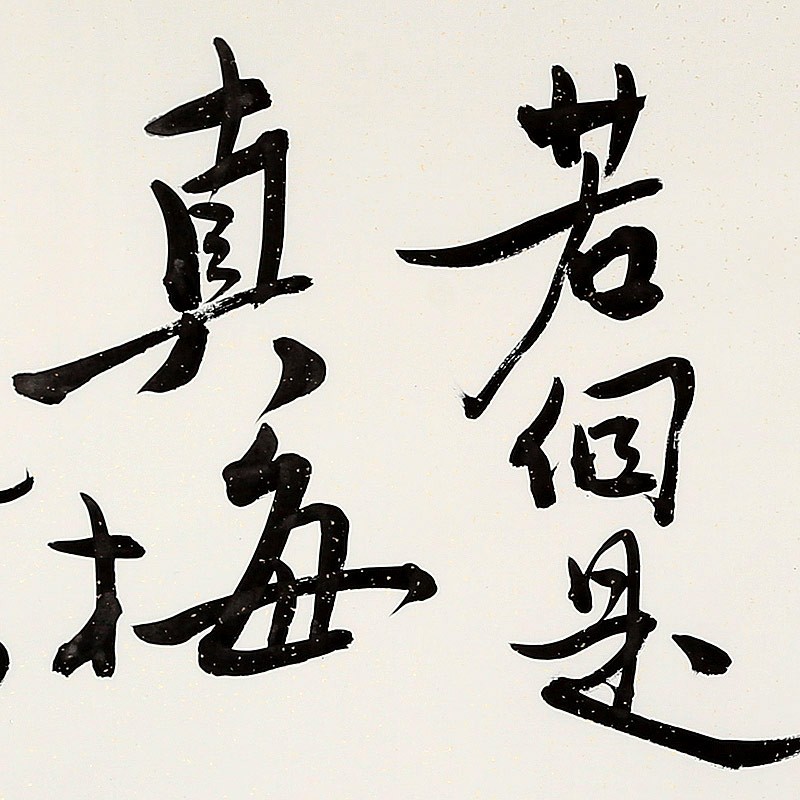 若個是
真梅